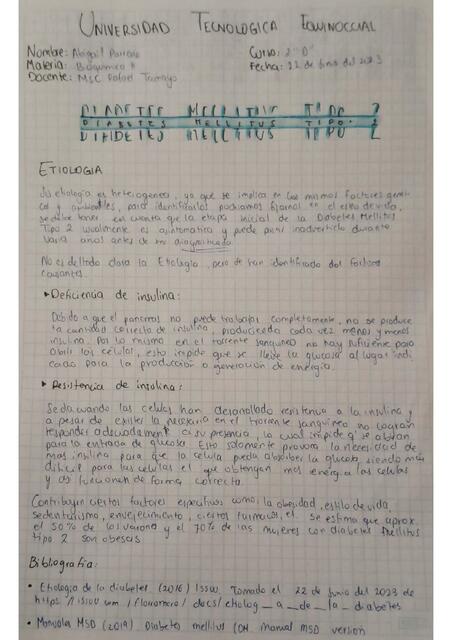 UNIVERSIDAD TECNOLOGICA EQUINOCCIAL
Nombre: Abigail
Materia: Bioquimica II
Docente: MSC Rafael Tamayo
Curso: 2 "D"
Fecha: 22 de Junio del 2023
DIABETES MELLITUS TIPO 2
ETIOLOGIA
Su etiologia es heterogenea, ya que se implica en los mismos factores geneti
cos y ambientales, para identificarlos podriamos fijarnos en el estilo de vida,
se debe tener en cuenta que la etapa inicial de la Diabetes Mellitus
Tipo 2 usualmente es asintomatica y puede pasar inadvertida durante
varios anos antes de ser diagnosticada
No es del todo clara la Etiologia, pero se han identificado dos factores
causantes.
▸Deficiencia de insulina:
Debido a que el pancreas no puede trabajar completamente, no se produce
la cantidad correcta de insulina, produciendo cada vez menos y menos
insulina. Por lo mismo en el torrente sanguineo no hay suficiente para
abrir las celulas, esto impide que se lleve la glucosa al lugar indi
cado para la produccion o generacion de energia.
▸Resistencia de insulina:
Se da cuando las celulas han desarrollado resistencia a la insulina y
a pesar de existir la necesaria en el torrente sanguineo no logran
responder adecuadamente a su presencia, lo cual impide q' se abran
para la entrada de glucosa. Esto solamente provoca la necesidad de
mas insulina para que la celula pueda absorber la glucosa, siendo mas
dificil para las celulas el que obtengan mas energia las celulas
y asi funcionen de forma correcta.
Contribuyen ciertos factores especificos como: la obesidad, estilo de vida,
sedentarismo, envejecimiento, ciertos farmacos, Se estima que aprox.
el 50% de los varones y el 70% de las mujeres con diabetes Mellitus
tipo 2 son obesas
Bibliografia:
• Etiologia de la diabetes (2016) Issuu. Tomado el 22 de Junio del 2023 de
https://issuu.com/flaromero/docs/etiolog_a_de_la_diabetes
• Manuals MSD (2019) Diabetes mellitus (DM) Manual MSD version